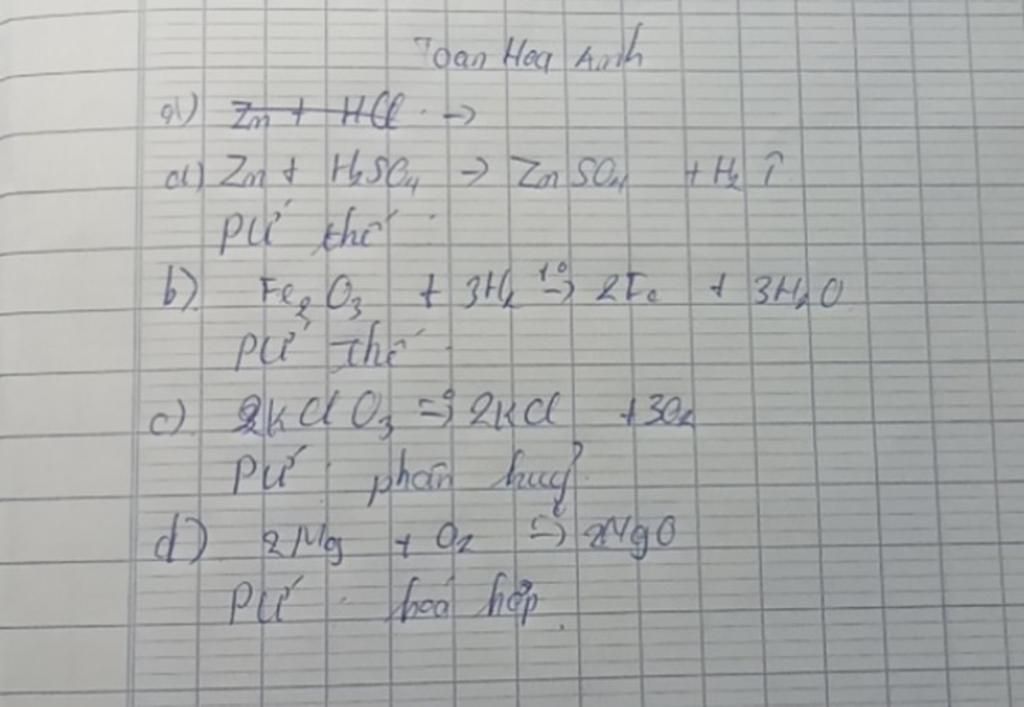 Toan Hoa Anh
a) Zn + HCl →
a) Zn + H₂SO₄ → ZnSO₄ + H₂ ↑
PƯ thế
b) Fe₂O₃ + 3H₂ t°→ 2Fe + 3H₂O
PƯ thế
c) 2KClO₃ t°→ 2KCl + 3O₂
PƯ phân huỷ
d) 2Mg + O₂ t°→ 2MgO
PƯ hoá hợp